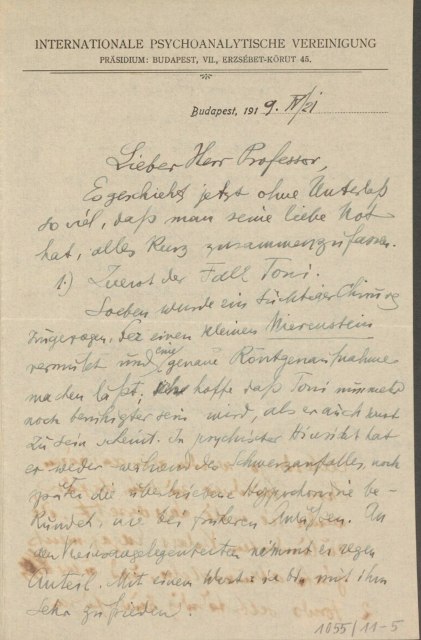 INTERNATIONALE PSYCHOANALYTISCHE VEREINIGUNG
PRÄSIDIUM: BUDAPEST, VII., ERZSÉBET-KÖRUT 45.
Budapest, 1919. IV/21
Lieber Herr Professor,
Es geschieht jetzt ohne Unterlaß
so viel, daß man seine liebe Not
hat, alles kurz zusammenzufassen.
1.) Zuerst der Fall Toni.
Soeben wurde ein tüchtiger Chirurg
zugezogen, der einen kleinen Nierenstein
vermutet und eine genaue Röntgenaufnahme
machen läßt; ich hoffe daß Toni nunmehr
noch beruhigter sein wird, als er auch sonst
zu sein scheint. In psychischer Hinsicht hat
er weder während des Schmerzanfalles, noch
später die übertriebene Hypochondrie be-
kundet, wie bei früheren Anlässen. An
den Vereinsangelegenheiten nimmt er regen
Anteil. Mit einem Worte: ich bin mit ihm
sehr zufrieden.
1055/11-5